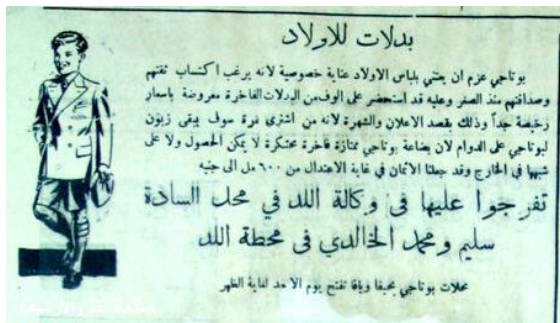 بدلات للاولاد
بوتاجي عزم ان يعتني بلباس الاولاد عناية خصوصية لانه يرغب اكتساب ثقتهم
وصداقتهم منذ الصغر وعليه قد استحضر على الوف من البدلات الفاخرة معروضة باسعار
رخيصة جداً وذلك بقصد الاعلان والشهرة لانه من اشترى مرة سوف يبقى زبون
لبوتاجي على الدوام لان بضاعة بوتاجي ممتازة فاخرة محتكرة لا يمكن الحصول ولا على
شبهها في الخارج وقد جعلنا الاثمان في غاية الاعتدال من ٦٠٠ مل الى جنيه
تفرجوا عليها في وكالة اللد في محل السادة
سليم ومحمد الخالدي في محطة اللد
محلات بوتاجي بحيفا ويافا تفتح يوم الاحد لغاية الظهر